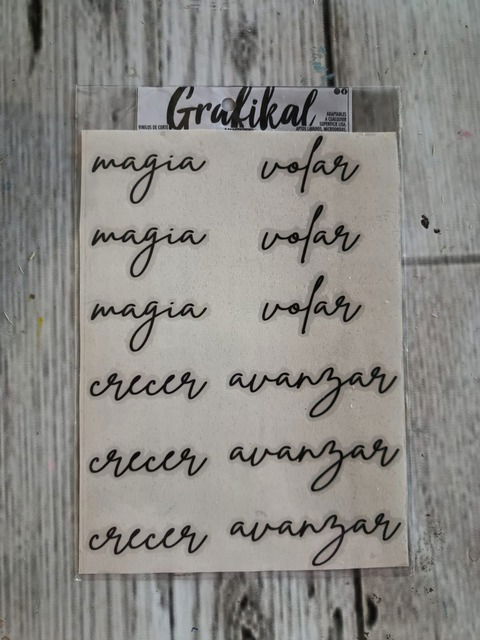 Grafikal
VINILOS DE CORTE
ADAPTABLES
A CUALQUIER
SUPERFICIE LISA.
APTOS LAVADO, MICROONDAS.
magia volar
magia volar
magia volar
crecer avanzar
crecer avanzar
crecer avanzar